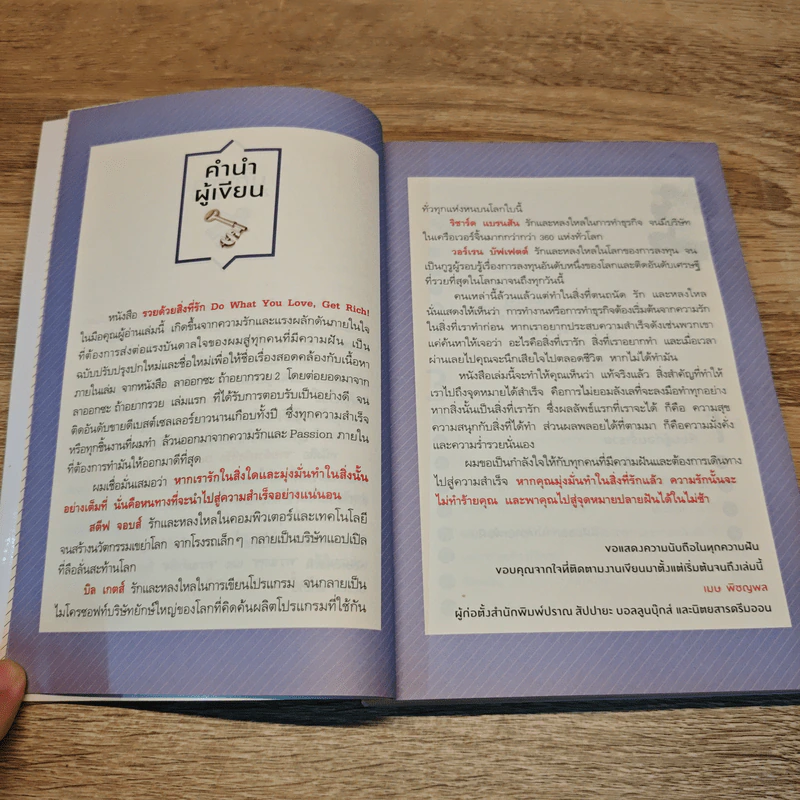 คำนำ
ผู้เขียน
หนังสือ รวยด้วยสิ่งที่รัก Do What You Love, Get Rich!
ในมือคุณผู้อ่านเล่มนี้ เกิดขึ้นจากความรักและแรงผลักดันภายในใจ
ที่ต้องการส่งต่อแรงบันดาลใจของผมสู่ทุกคนที่มีความฝัน เป็น
ฉบับปรับปรุงปกใหม่และชื่อใหม่เพื่อให้ชื่อเรื่องสอดคล้องกับเนื้อหา
ภายในเล่ม จากหนังสือ ลาออกซะ ถ้าอยากรวย 2 โดยต่อยอดมาจาก
ลาออกซะ ถ้าอยากรวย เล่มแรก ที่ได้รับการตอบรับเป็นอย่างดี จน
ติดอันดับขายดีเบสต์เซลเลอร์ยาวนานเกือบทั้งปี ซึ่งทุกความสำเร็จ
หรือทุกชิ้นงานที่ผมทำ ล้วนออกมาจากความรักและ Passion ภายใน
ที่ต้องการทำมันให้ออกมาดีที่สุด
ผมเชื่อมั่นเสมอว่า หากเรารักในสิ่งใดและมุ่งมั่นทำในสิ่งนั้น
อย่างเต็มที่ นั่นคือหนทางที่จะนำไปสู่ความสำเร็จอย่างแน่นอน
สตีฟ จอบส์ รักและหลงใหลในคอมพิวเตอร์และเทคโนโลยี
จนสร้างนวัตกรรมเขย่าโลก จากโรงรถเล็กๆ กลายเป็นบริษัทแอปเปิล
ที่ลือลั่นสะท้านโลก
บิล เกตส์ รักและหลงใหลในการเขียนโปรแกรม จนกลายเป็น
ไมโครซอฟท์บริษัทยักษ์ใหญ่ของโลกที่คิดค้นผลิตโปรแกรมที่ใช้กัน
ทั่วทุกแห่งหนบนโลกใบนี้
ริชาร์ด แบรนสัน รักและหลงใหลในการทำธุรกิจ จนมีบริษัท
ในเครือเวอร์จิ้นมากกว่ากว่า 360 แห่งทั่วโลก
วอร์เรน บัฟเฟตต์ รักและหลงใหลในโลกของการลงทุน จน
เป็นกูรูผู้รอบรู้เรื่องการลงทุนอันดับหนึ่งของโลกและติดอันดับเศรษฐี
ที่รวยที่สุดในโลกมาจนถึงทุกวันนี้
คนเหล่านี้ล้วนแล้วแต่ทำในสิ่งที่ตนถนัด รัก และหลงใหล
นั่นแสดงให้เห็นว่า การทำงานหรือการทำธุรกิจต้องเริ่มต้นจากความรัก
ในสิ่งที่เราทำก่อน หากเราอยากประสบความสำเร็จดังเช่นพวกเขา
แค่ค้นหาให้เจอว่า อะไรคือสิ่งที่เรารัก สิ่งที่เราอยากทำ และเมื่อเวลา
ผ่านเลยไปคุณจะนึกเสียใจไปตลอดชีวิต หากไม่ได้ทำมัน
หนังสือเล่มนี้จะทำให้คุณเห็นว่า แท้จริงแล้ว สิ่งสำคัญที่ทำให้
เราไปถึงจุดหมายได้สำเร็จ คือการไม่ยอมลังเลที่จะลงมือทำทุกอย่าง
หากสิ่งนั้นเป็นสิ่งที่เรารัก ซึ่งผลลัพธ์แรกที่เราจะได้ ก็คือ ความสุข
ความสนุกกับสิ่งที่ได้ทำ ส่วนผลพลอยได้ที่ตามมา ก็คือความมั่งคั่ง
และความร่ำรวยนั่นเอง
ผมขอเป็นกำลังใจให้กับทุกคนที่มีความฝันและต้องการเดินทาง
ไปสู่ความสำเร็จ หากคุณมุ่งมั่นทำในสิ่งที่รักแล้ว ความรักนั้นจะ
ไม่ทำร้ายคุณ และพาคุณไปสู่จุดหมายปลายฝันได้ในไม่ช้า
ขอแสดงความนับถือในทุกความฝัน
ขอบคุณจากใจที่ติดตามงานเขียนมาตั้งแต่เริ่มต้นจนถึงเล่มนี้
เมษ พิชญพล
ผู้ก่อตั้งสำนักพิมพ์ปราณ สัปปายะ บอลลูนบุ๊กส์ และนิตยสารดรีมออน